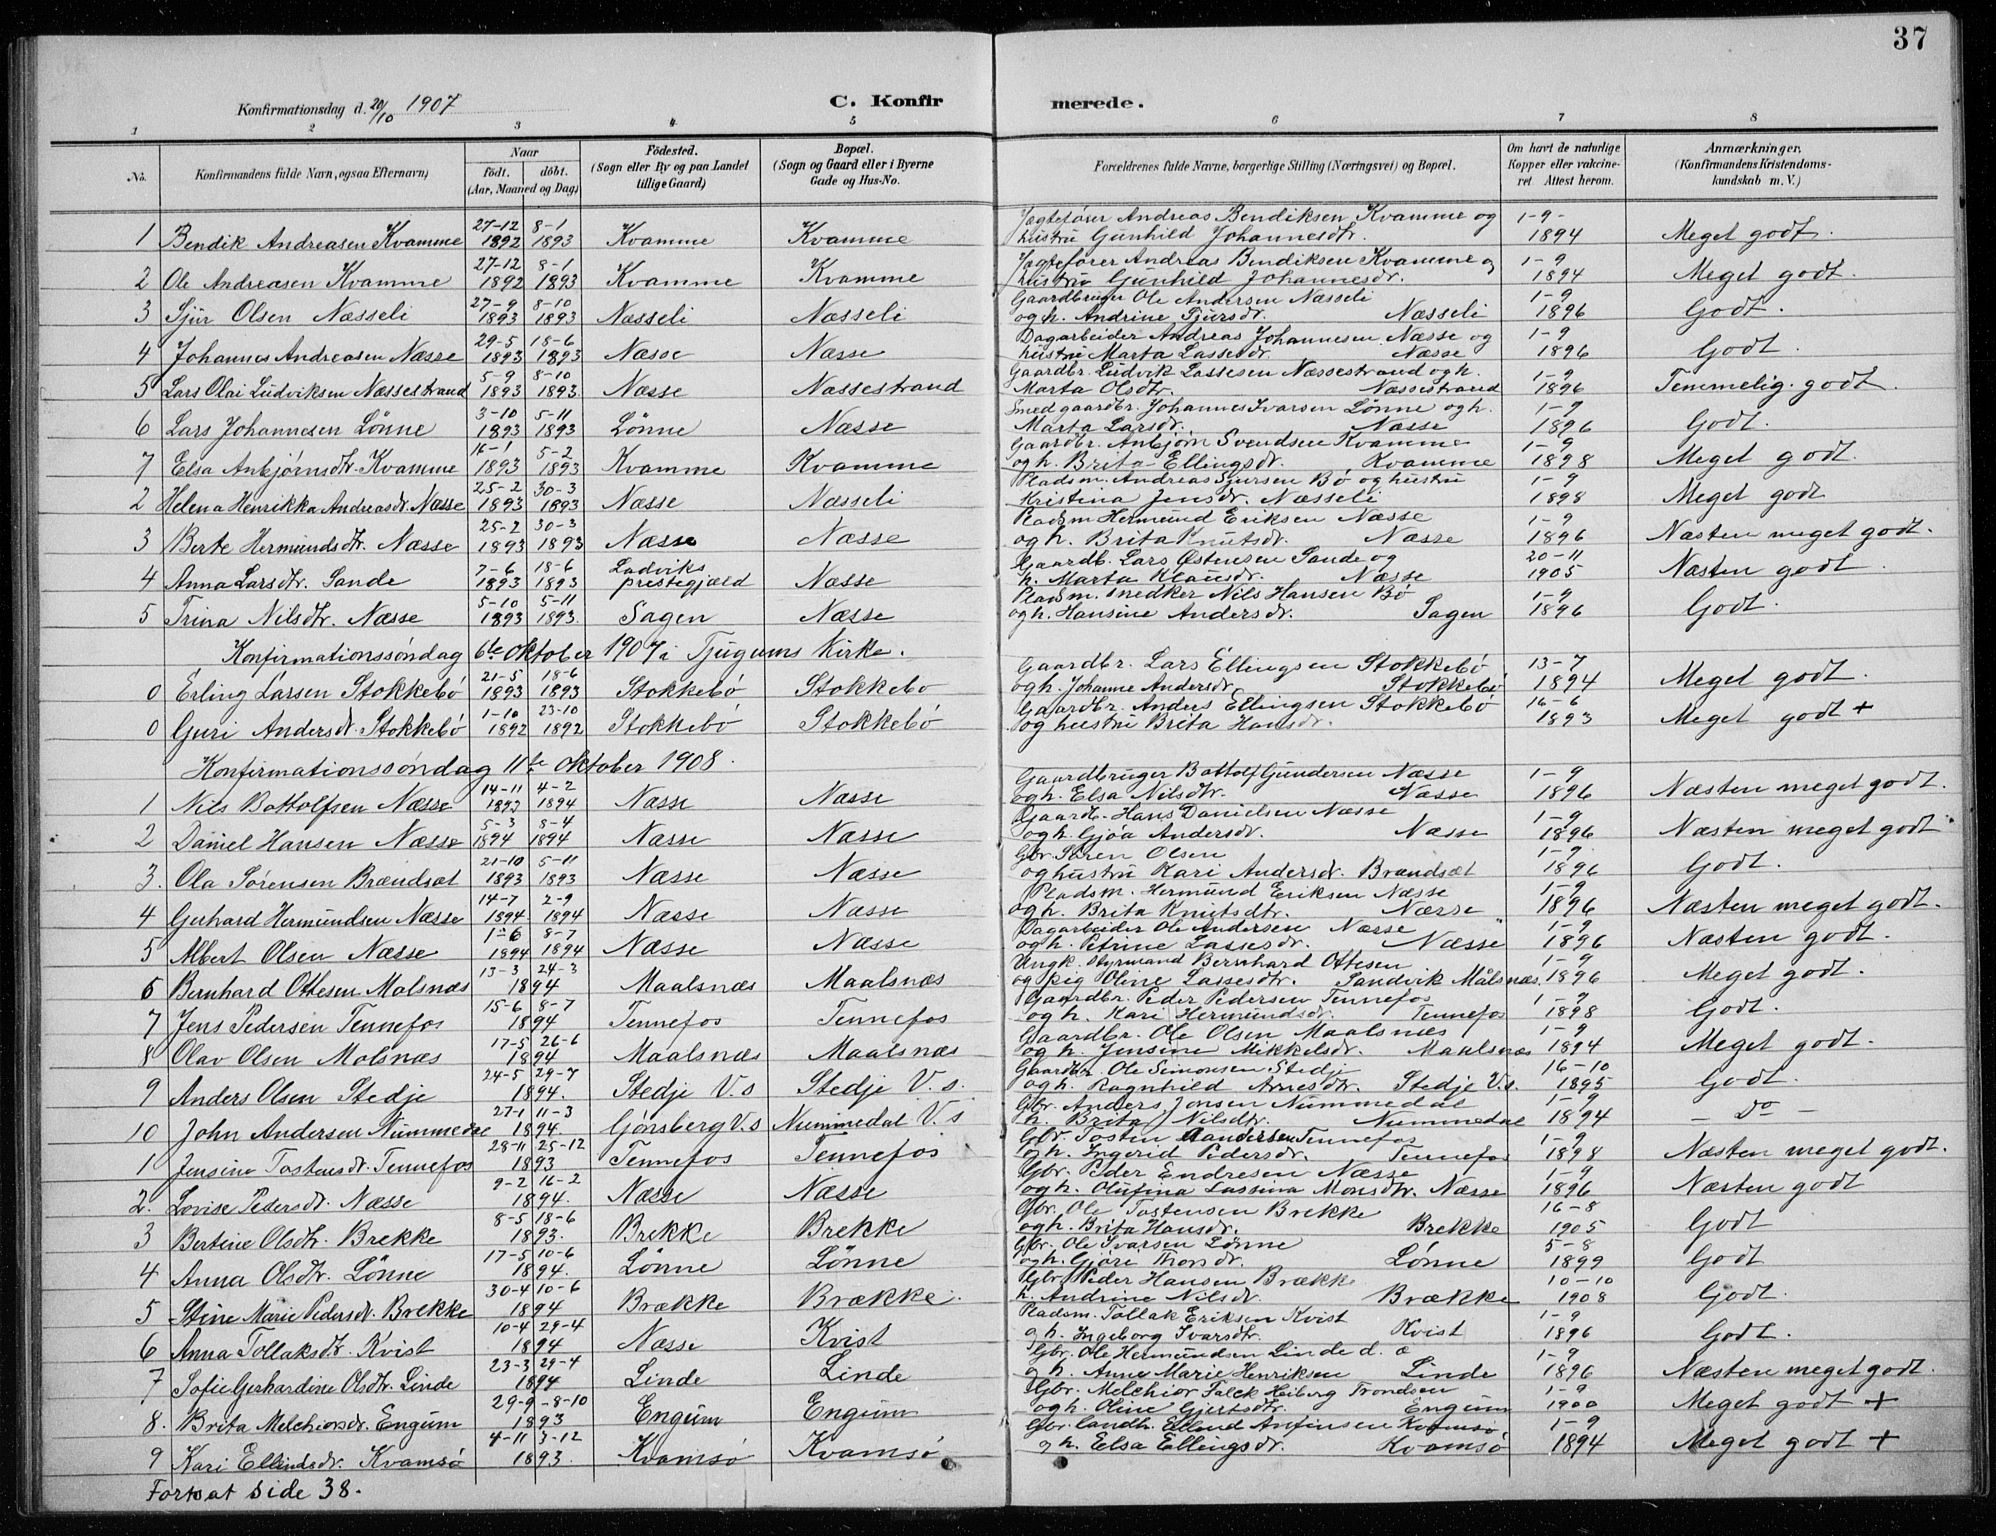 37
Konfirmationsdag d. 20/10 1907
C. Konfirmerede.
1 2 3 4 5 6 7 8
No. Konfirmandens fulde Navn, ogsaa Efternavn) Naar født. døbt. (Aar, Maaned og Dag) Fødested. (Sogn eller By og paa Landet tillige Gaard) Bopæl. (Sogn og Gaard eller i Byerne Gade og Hus-No. Forældrenes fulde Navne, borgerlige Stilling (Næringsvei) og Bopæl. Om havt de naturlige Kopper eller vakcineret Attest herom. Anmærkninger. (Konfirmandens Kristendomskundskab m. V.)
1 Bendik Andreasen Kvamme 27-12 1892 8-1 1893 Kvamme Kvamme Jægtefører Andreas Bendiksen Kvamme og hustru Gunhild Johannesdtr. 1-9- 1894 Meget godt.
2 Ole Andreasen Kvamme 27-12 1892 8-1 1893 Kvamme Kvamme Jægtefører Andreas Bendiksen Kvamme og hustru Gunhild Johannesdr. 1-9 1894 Meget godt.
3 Sjur Olsen Næsseli 27-9 1893 8-10 1893 Næsseli Næsseli Gaardbruger Ole Andersen Næsseli og h. Andrine Sjursdr. Næsseli 1-9 1896 Godt.
4 Johannes Andreasen Næsse 29-5 1893 18-6 1893 Næsse Næsse Dagarbeider Andreas Johannesen Næsse og hustru Marta Lassesdr. Næsse 1-9 1896 Godt.
5 Lars Olai Ludviksen Næssestrand 5-9 1893 8-10 1893 Næsse Næssestrand Gaardbr. Ludvik Lassesen Næssestrand og h. Marta Olsdtr. Næssestrand 1-9 1896 Temmelig godt.
6 Lars Johannesen Lønne 3-10 1893 5-11 1893 Lønne Næsse Smed gaardbr. Johannes Ivarsen Lønne og h. Marta Larsdr. Næsse 1-9 1896 Godt.
7 Elsa Anbjørnsdtr. Kvamme 16-1 1893 5-2 1893 Kvamme Kvamme Gaardbr. Anbjørn Svendsen Kvamme og h. Brita Ellingsdr. Kvamme 1-9 1898 Meget godt.
2 Helena Henrikka Andreasdr. Næsse 25-2 1893 30-3 1893 Næsse Næsseli Pladsm. Andreas Sjursen Bø og hustru Kristina Jensdr. Næsseli 1-9 1898 Meget godt
3 Berte Hermundsdtr. Næsse 25-2 1893 30-3 1893 Næsse Næsse Pladsm Hermund Eriksen Næsse og h. Brita Knutsdr. Næsse 1-9 1896 Næsten meget godt.
4 Anna Larsdtr. Sande 7-6 1893 18-6 1893 Ladviks prestegjæld Næsse Gaardb. Lars Østensen Sande og h. Marta Klausdr. Næsse 20-11 1905 Næsten godt.
5 Trina Nilsdtr. Næsse 5-10 1893 5-11 1893. Sagen Næsse Pladsm. snedker Nils Hansen Bø og h. Hansine Andersdr. Sagen 1-9 1896 Godt.
Konfirmationssøndag 6te oktober 1907 i Tjugums Kirke.
0 Erling Larsen Stokkebø 21-5 1893 18-6 1893 Stokkebø Stokkebø Gaardbr. Lars Ellingsen Stokkebø og h. Johanne Andersdr. Stokkebø 13-7 1894 Meget godt.
0 Guri Andersdr. Stokkebø 1-10 1892 23-10 1892 Stokkebø Stokkebø Gaardbr. Anders Ellingsen Stokkebø og hustru Brita Hansdr. 16-6 1893 Meget godt +
Konfirmationssøndag 11te oktober 1908.
1 Nils Bottolfsen Næsse 14-11 1893 4-2 1894 Næsse Næsse Gaardbruger Bottolf Gundersen Næsse og h. Elsa Nilsdtr. Næsse 1-9 1896 Næsten meget godt.
2 Daniel Hansen Næsse 5-3 1894 8-4 1894 Næsse Næsse Gaardb. Hans Danielsen Næsse og h. Gjøa Andersdr. Næsse 1-9 1896 Næsten meget godt
3. Ola Sørensen Brændsæt 21-10 1893 5-11 1893 Næsse Næsse Gbr. Søren Olsen og hustru Kari Andersdr. Brændsæt 1-9. 1896 Godt.
4 Gerhard Hermundsen Næsse 14-7 1894 2-9 1894 Næsse Næsse Pladsm. Hermund Eriksen Næsse og h. Brita Knutsdtr. Næsse 1-9 1896 Næsten meget godt.
5 Albert Olsen Næsse 1-6 1894 8-7 1894 Næsse Næsse Dagarbeider Ole Andersen Næsse og h. Petrine Lassesdr. Næsse 1-9 1896 Næsten godt.
6 Bernhard Ottesen Malsnæs 13-3 24-3 1894 Maalsnæs Maalsnæs Ungk. styrmand Bernhard Ottesen og pig Oline Lassesdtr. Sandvik Målsnæs. 1-9 1896 Meget godt.
7 Jens Pedersen Tennefos 15-6 8-7 1894 Tennefos Tennefos Gaardbr. Peder Pedersen Tennefos og h. Kari Hermundsdr. Tennefos 1-9 1898 Godt.
8 Olav Olsen Malsnæs 17-5 26-6 1894 Maalsnæs Maalsnæs Gaardbr. Ole Olsen Maalsnæs og h. Jensine Mikkelsdr. Maalsnæs 1-9 1894 Meget godt.
9 Anders Olsen Stedje 24-5 29-7 1894. Stedje V.s Stedje V.s. Gaardbr. Ole Simonsen Stedje og h. Ragnhild Arnesdtr. Stedje V.s. 16-10 1895 Godt.
10 John Andersen Nummedal 27-1 11-3 1894. Gjønsberg V.s Nummedal V.s Gbr. Anders Jonsen Nummedal h. Brita Nilsdtr. Nummedal 1-9 1894 - do -
1 Jensine Tostensdr. Tennefos 28-11 25-12 1893 Tennefos Tennefos Gbr. Tosten Aandersen Tennefos og h. Ingerid Pedersdr. Tennefos 1-9 1898 Næsten meget godt.
2. Lovise Pedersdtr. Næsse 9-2 16-2 1894. Næsse Næsse Gbr. Peder Endresen Næsse og h. Olufina Lassina Monsdtr. Næsse 1-9 1896 Næsten godt
3 Bertine Olsdtr. Brekke 8-5 18-6 1893. Brekke Brekke Gbr. Ole Tostensen Brekke og h. Brita Hansdr. Brekke 16-8 1905 Godt
4 Anna Olsdtr. Lønne 17-5 10-6 1894. Lønne Lønne Gbr. Ole Ivarsen Lønne og h. Gjøri Thorsdr. Lønne 5-8 1899 Godt
5 Stine Marie Pedersdr. Brekke 30-4 10-6 1894 Brække Brække. Gbr. Peder Hansen Brække h. Andrine Nilsdr. Brække 10-10 1908 Godt.
6 Anna Tollaksdtr. Kvist 10-4 29-4 1894 Næsse Kvist Pladsm. Tollak Eriksen Kvist og h. Ingeborg Ivarsdtr. Kvist 1-9 1896 Godt.
7 Sofie Gerhardine Olsdtr. Linde 23-3 29-4 1894 Linde Linde Gbr. Ole Hermundsen Linde d. æ og h. Anne Marie Henriksen Linde 1-9 1896 Næsten meget godt.
8. Brita Melchiorsdr. Engum 29-9 8-10 1893 Engum Engum Gbr. Melchior Falck Heiberg Trondsen og h. Oline Gjertsdtr. Engum 1-9 1900 Meget godt +
9 Kari Ellendsdr. Kvamsø 4-11 3-12 1893. Kvamsø Kvamsø Gbr. landh. Ellend Anfinsen Kvamsø og h. Elsa Ellingsdr. Kvamsø 1-9 1894 Meget godt +
Forts at side 38.